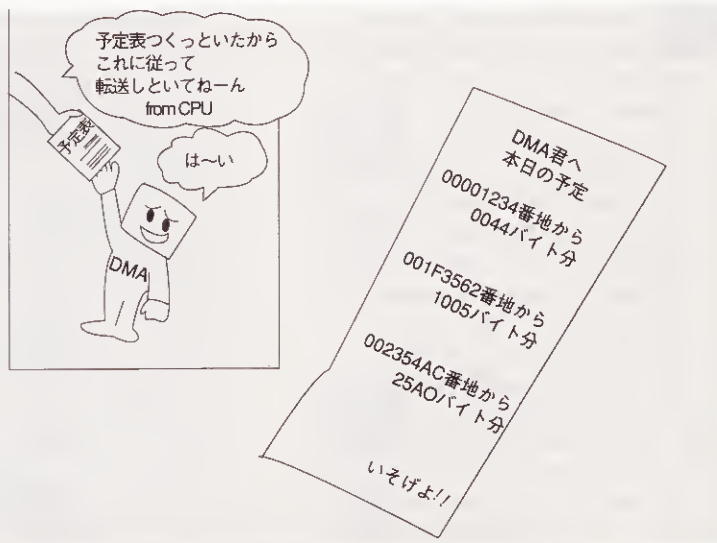 予定表つくっといたから
これに従って
転送しといてねーん
from CPU
予定表
は〜い
DMA
DMA君へ
本日の予定
00001234番地から
0044バイト分
001F3562番地から
1005バイト分
002354AC番地から
25AOバイト分
いそげよ!!